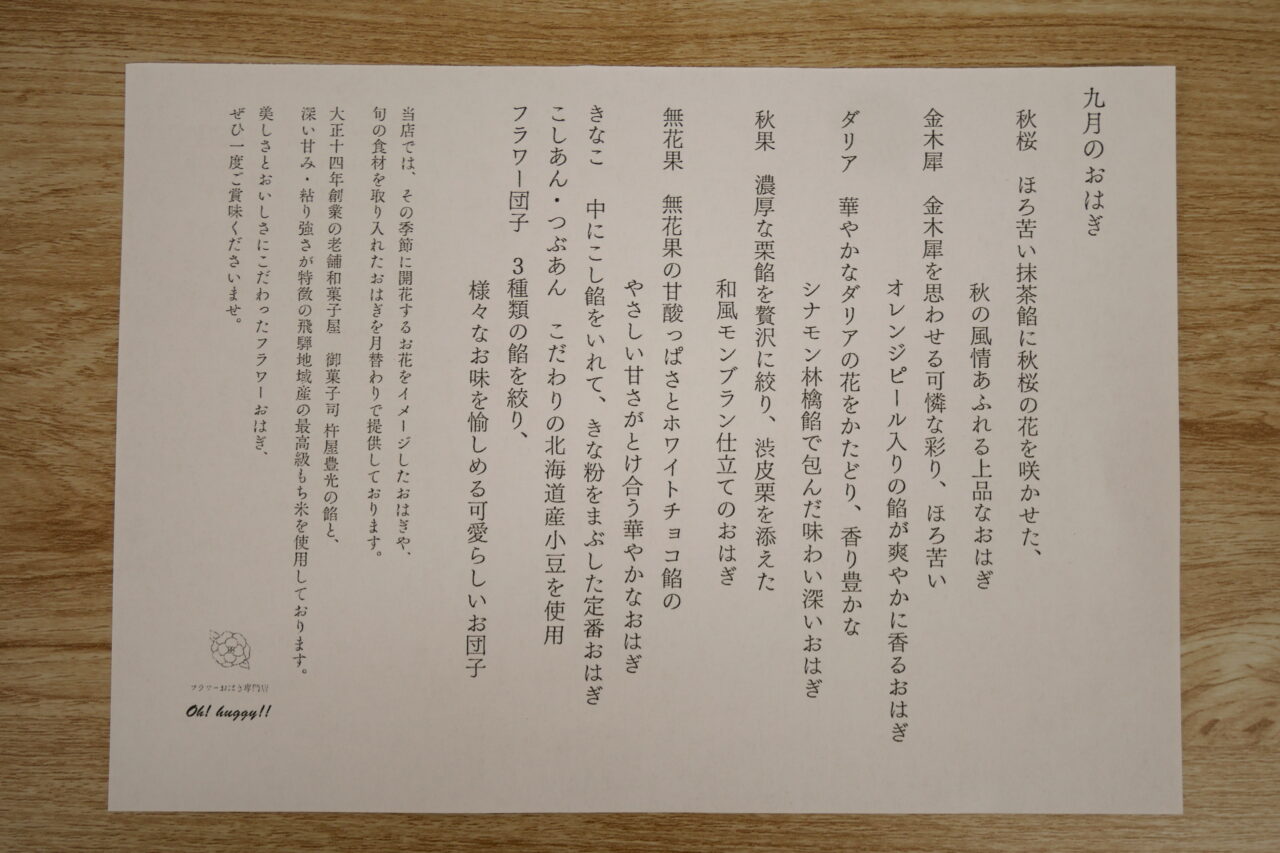 九月のおはぎ
秋桜　ほろ苦い抹茶餡に秋桜の花を咲かせた、
秋の風情あふれる上品なおはぎ
金木犀　金木犀を思わせる可憐な彩り、ほろ苦い
オレンジピール入りの餡が爽やかに香るおはぎ
ダリア　華やかなダリアの花をかたどり、香り豊かな
シナモン林檎餡で包んだ味わい深いおはぎ
秋果　濃厚な栗餡を贅沢に絞り、渋皮栗を添えた
和風モンブラン仕立てのおはぎ
無花果　無花果の甘酸っぱさとホワイトチョコ餡の
やさしい甘さがとけ合う華やかなおはぎ
きなこ　中にこし餡をいれて、きな粉をまぶした定番おはぎ
こしあん・つぶあん　こだわりの北海道産小豆を使用
フラワー団子　3種類の餡を絞り、
様々なお味を愉しめる可愛らしいお団子
当店では、その季節に開花するお花をイメージしたおはぎや、
旬の食材を取り入れたおはぎを月替わりで提供しております。
大正十四年創業の老舗和菓子屋　御菓子司 杵屋豊光の餡と、
深い甘み・粘り強さが特徴の飛騨地域産の最高級もち米を使用しております。
美しさとおいしさにこだわったフラワーおはぎ、
ぜひ一度ご賞味くださいませ。
フラワーおはぎ専門店
Oh! huggy!!